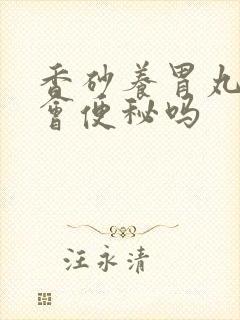 香砂养胃丸
会便秘吗
汪永清